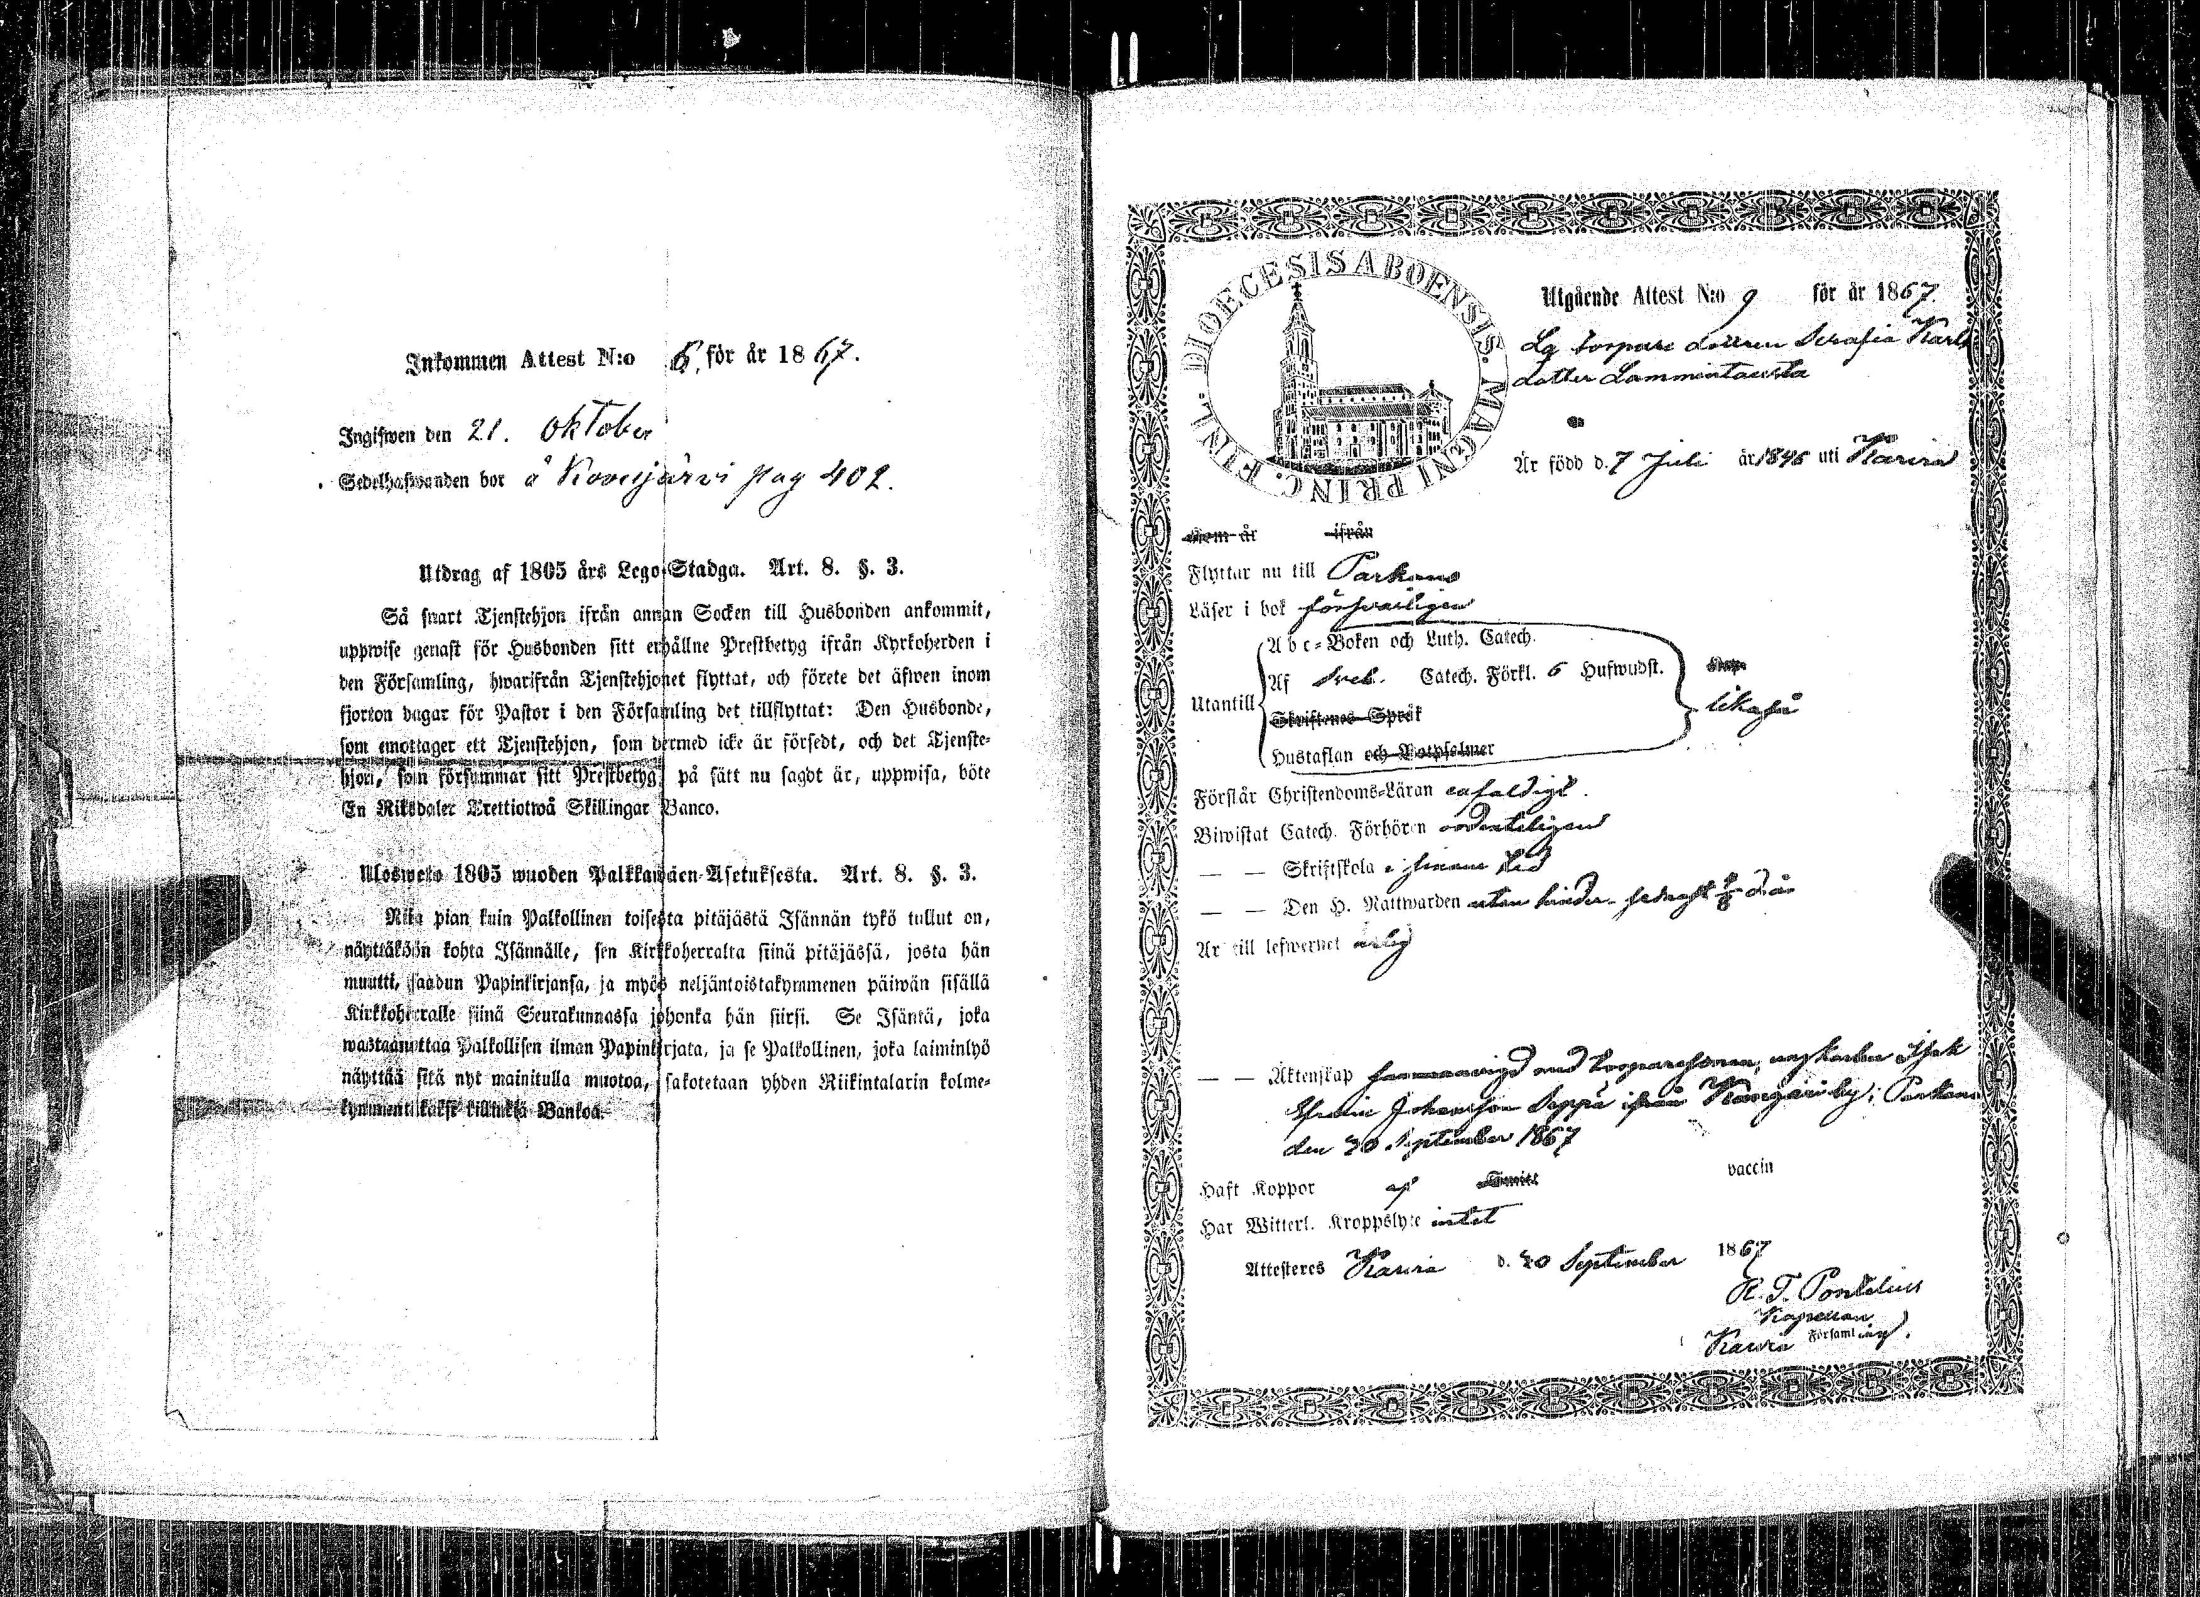 Inkommen Attest N:o 6, för år 1867.
Ingifwen den 21. Oktober
Sedelhafwanden bor å Kovesjärvi pag 402.
Utdrag af 1805 års Lego-Stadga. Art. 8. §. 3.
Så snart Tjenstehjon ifrån annan Socken till Husbonden ankommit,
uppwise genast för Husbonden sitt erhållne Prestbetyg ifrån Kyrkoherden i
den Församling, hwarifrån Tjenstehjonet flyttat, och förete det äfwen inom
fjorton dagar för Pastor i den Församling det tillflyttat: Den Husbonde,
som emottager ett Tjenstehjon, som dermed icke är försedt, och det Tjenste-
hjon, som försummar sitt Prestbetyg på sätt nu sagdt är, uppwisa, böte
En Riksdaler Trettiotwå Skillingar Banco.
Ulosweto 1805 wuoden Palkkawäen-Asetuksesta. Art. 8. §. 3.
Niin pian kuin Palkollinen toisesta pitäjästä Isännän tykö tullut on,
näyttäköön kohta Isännälle, sen Kirkkoherralta siinä pitäjässä, josta hän
muutti, saadun Papinkirjansa, ja myös neljäntoistakymmenen päiwän sisällä
Kirkkoherralle siinä Seurakunnassa johonka hän siirsi. Se Isäntä, joka
wastaanottaa Palkollisen ilman Papinkirjata, ja se Palkollinen, joka laiminlyö
näyttää sitä nyt mainitulla muotoa, sakotetaan yhden Riikintalarin kolme-
kymmentäkaksi killinkiä Bankoa.
DIOECESIS ABOENSIS. MAGNI PRINC. FINL.
Utgående Attest N:o 9 för år 1867.
Lg torpare dottren Serafia Karls
dotter Lammintausta
Är född d. 7 Juli år 1846 uti Karvia
Kom år ifrån
Flyttar nu till Parkano
Läser i bok försvarligen
Abc-Boken och Luth. Catech.
Utantill Af Sveb. Catech. Förkl. 6 Hufwudst. likaså
Skriftenes Språk
Hustaflan och Botpsalmer
Förstår Christendoms-Läran enfaldigt.
Biwistat Catech. Förhören ordenteligen
— — Skriftskola i sinom tid
— — Den H. Nattwarden utan hinder d. å.
Är till lefwernet ärlig
— — Äktenskap med torparesonen, ungkarlen Isak
Efraim Johansson Seppä ifrån by i Parkano
den 20 September 1867
Haft Koppor af vaccin
Har Witterl. Kroppslyte intet
Attesteres Karvia d. 20 September 1867
K. T. Pontelius
Kapellan
Karvia Församling.